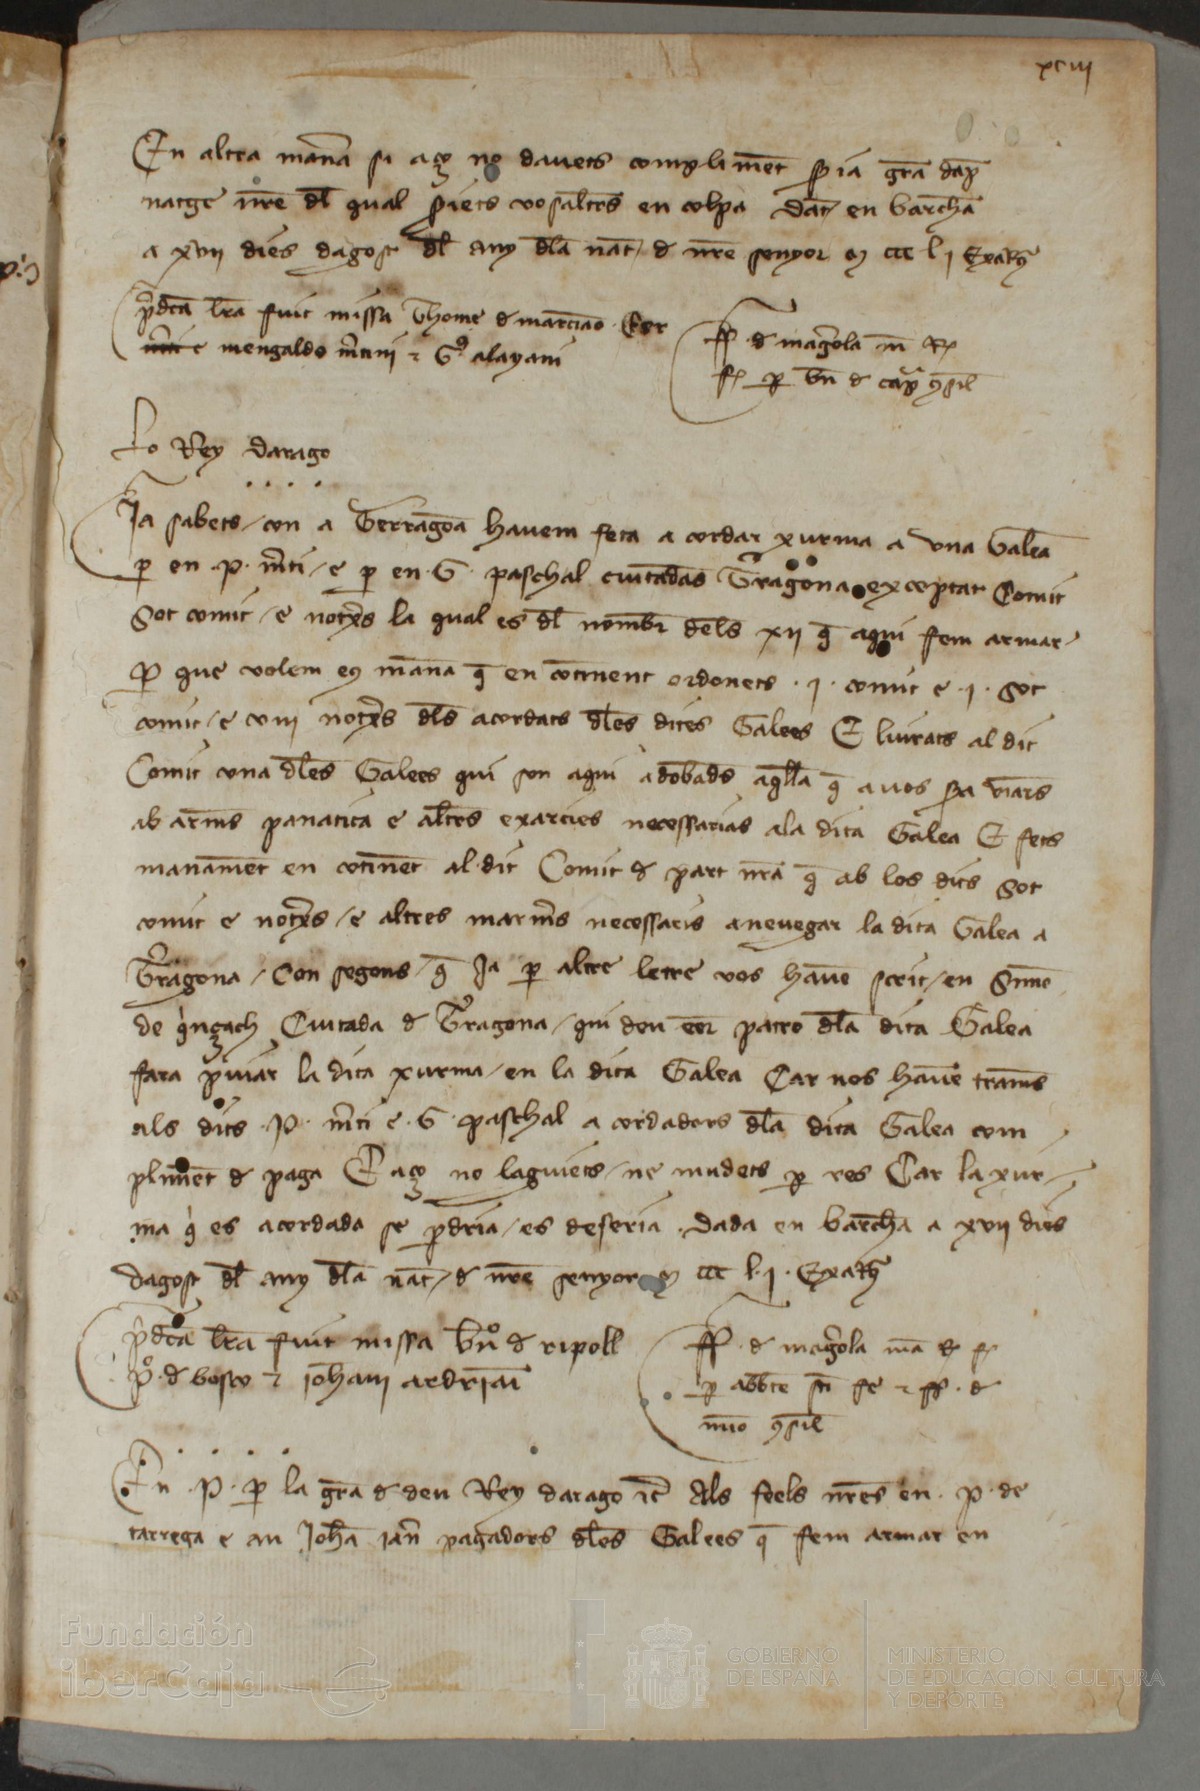 xciii
En altra mana si aço no davets compliment seria gra dap
natge nre del qual siets vosaltres en colpa dat en barchna
a xvii dies dagost dl any dla nat d nre senyor M ccc l i Exatus
pdca lra fuit missa Thome d marciano
e mengaldo mtini & G alayani
ff d magrola m R
p bn d cap gsil
Lo Rey darago
Ja sabets con a Terragoa havem feta a cordar xurma a una Galea
p en P mti e p en G paschal ciutadas Tragona exceptat Comit
Sot comit e notxers la qual es dl nombr dels xii q aqui fem armar
p que volem eus mana q en cotinent ordonets i comit e i Sot
comit e viii notxers dls acordats dles dites Galees E liurats al dit
Comit una dles Galees qui son aqui adobads aqlla q a vos pa viars
ab arms panatica e altres exarcies necessarias ala dita Galea E fets
manament en cotinet al dit Comit d part nra q ab los dits Sot
comit e notxers e altres mariners necessaris a nevegar la dita Galea a
Tragona Con segons q Ja p altre letre vos have scrit en Simo
de Ciutada d Tragona qui deu eer patro dla dita Galea
fara puiar la dita xurma en la dita Galea Car nos have trames
als dits P mti e G paschal a cordadors dla dita Galea com
pliment d paga E aço no laguiets ne mudets p res Car la xur
ma q es acordada se pdria es deseria dada en barchna a xvii dies
dagost dl any dla nat d nre senyor M ccc l i Exatus
pdca lra fuit missa bn d ripoll
P d bosco & iohani adriani
ff d magrola ma R
p abbte sti fe & ff d
gsil
En P p la gra d deu Rey darago &c Als feels nres en P de
tarrega e an Joha pagadors dles Galees q fem armar en
Fundación
iberCaja
GOBIERNO
DE ESPAÑA
MINISTERIO
DE EDUCACIÓN, CULTURA
Y DEPORTE